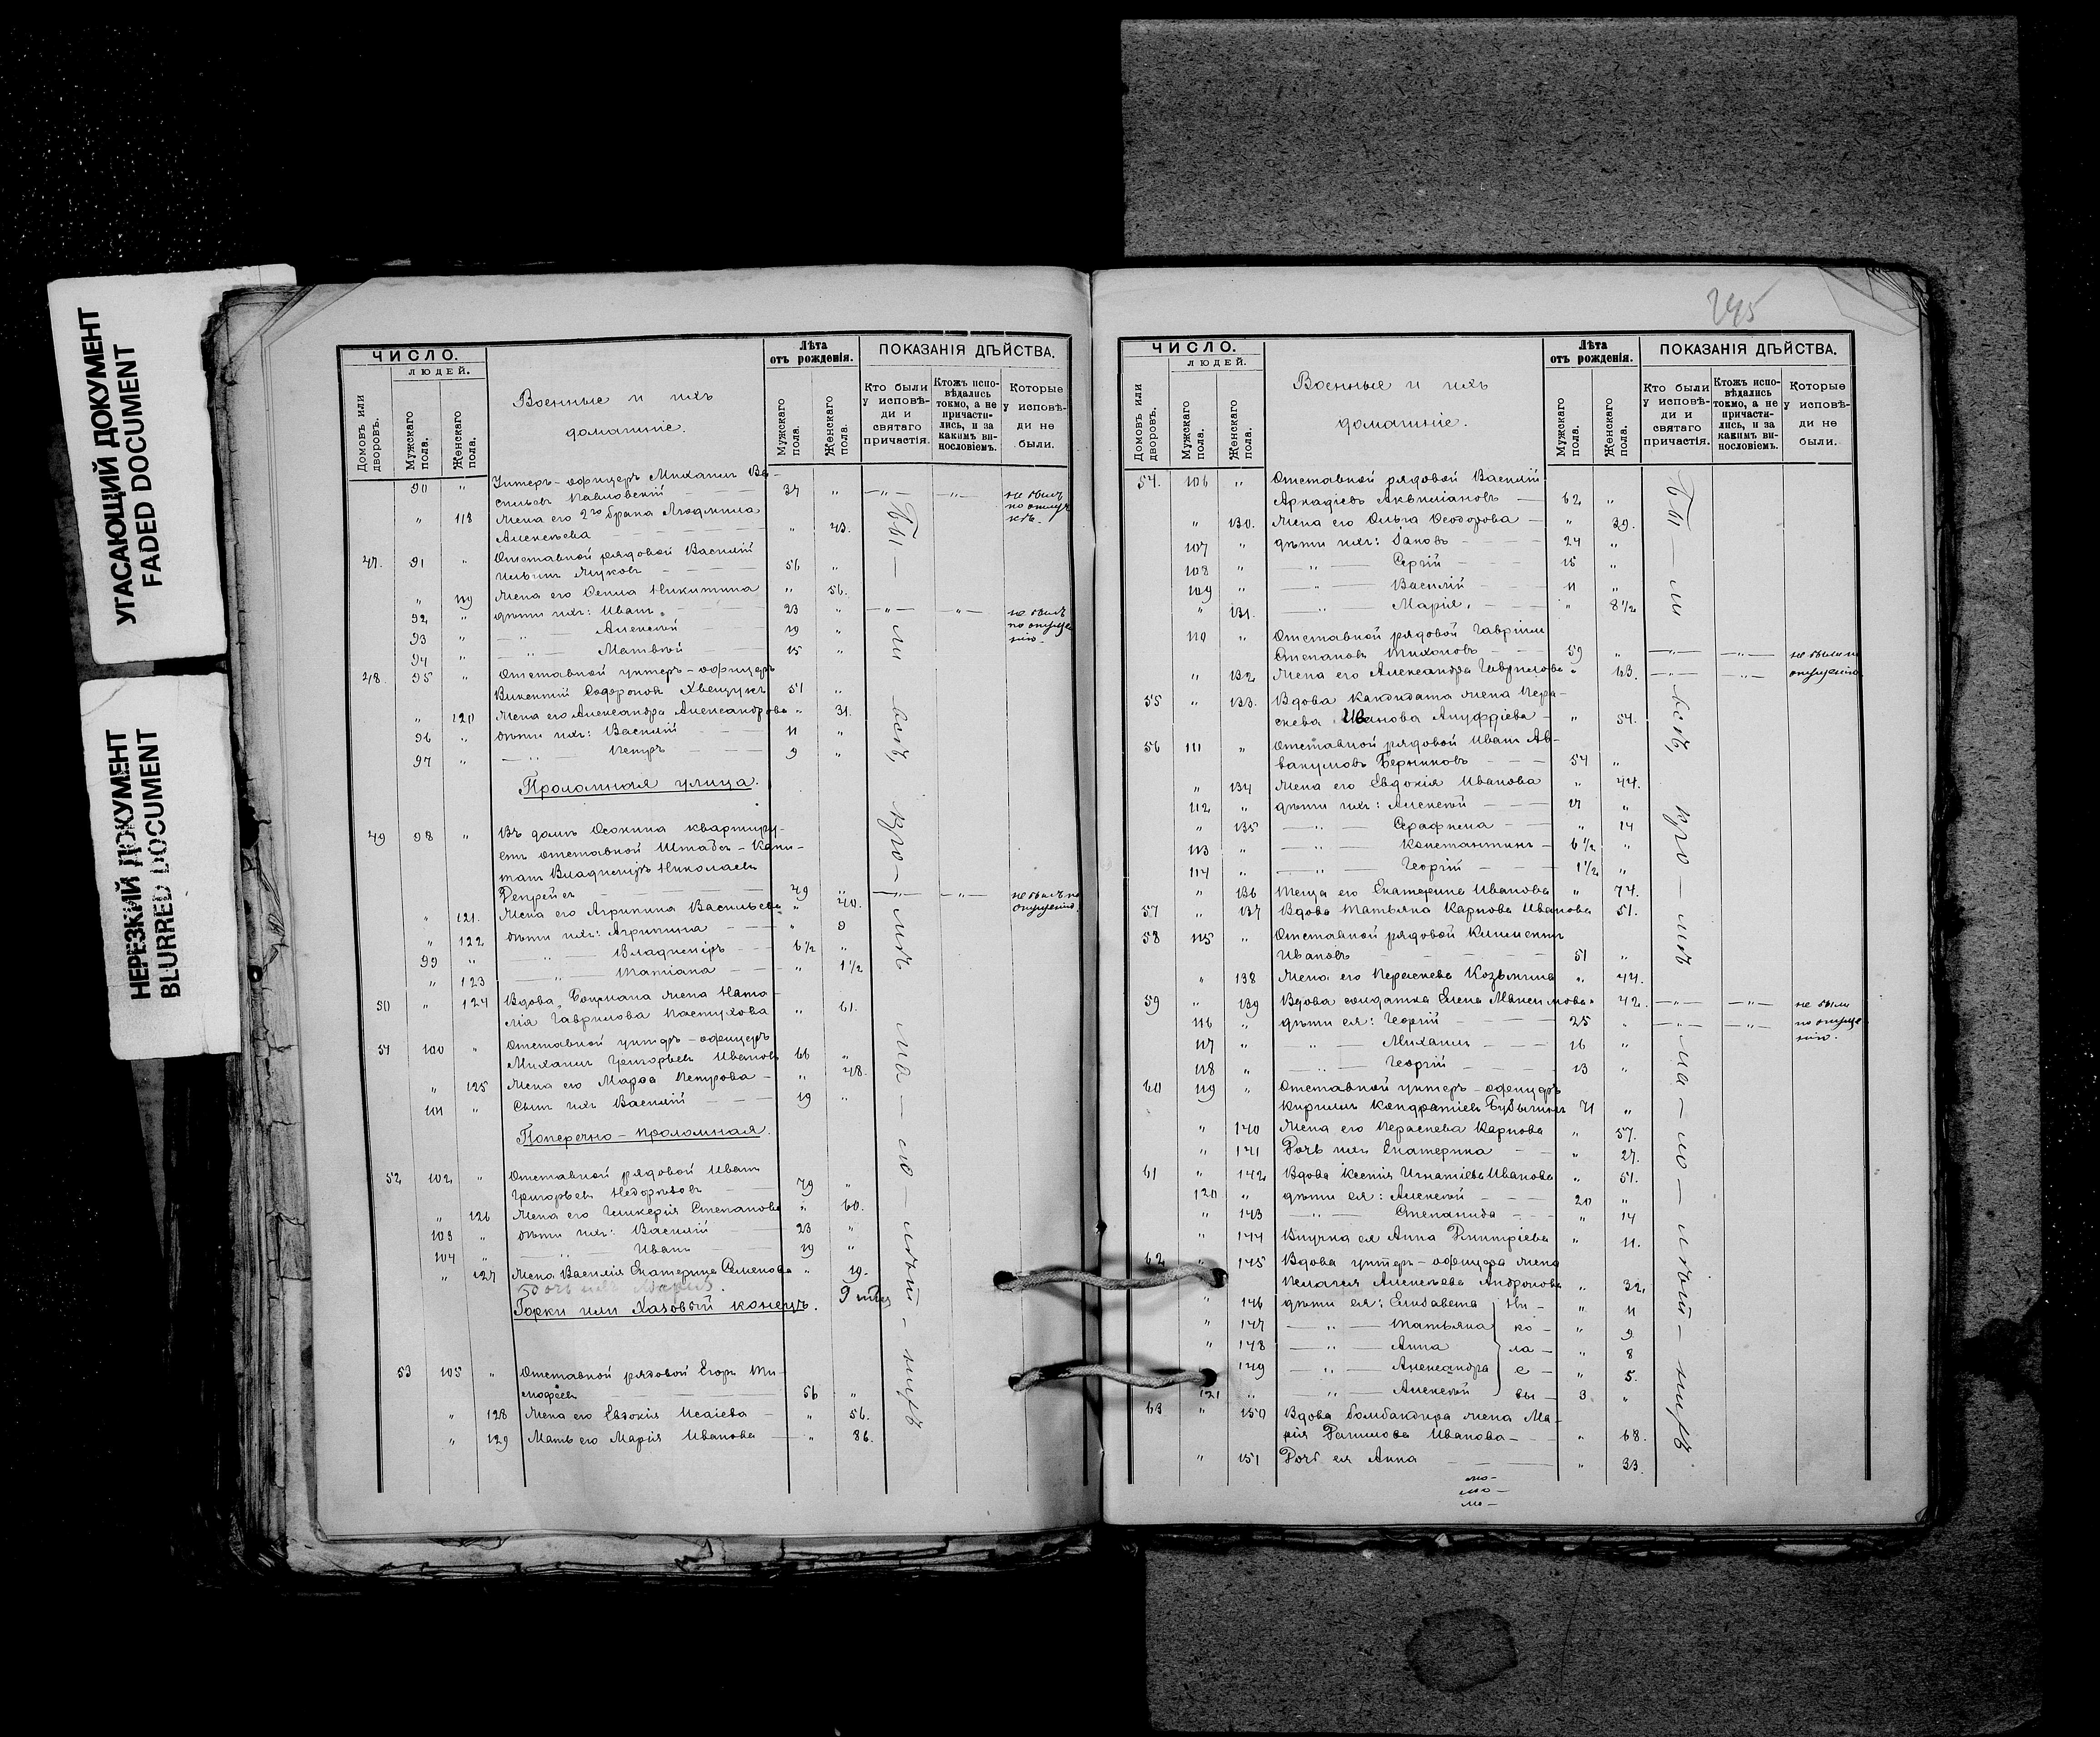 УГАСАЮЩИЙ ДОКУМЕНТ
FADED DOCUMENT
НЕРЕЗКИЙ ДОКУМЕНТ
BLURRED DOCUMENT
ЧИСЛО.
ЛЮДЕЙ.
Домовъ или дворовъ.
Мужскаго пола.
Женскаго пола.
Военные и ихъ
домашніе.
Лѣта
отъ рожденія.
Мужскаго пола.
Женскаго пола.
ПОКАЗАНІЯ ДѢЙСТВА.
Кто были у исповѣди и святаго причастія.
Ктожъ исповѣдались токмо, а не причастились, и за какимъ винословіемъ.
Которые у исповѣди не были.
90 " Унтеръ-офицеръ Михаилъ Ва-
сильевъ Павловскій 34 " не былъ
" 118 Жена его 2го брака Людмила
Алексѣева " 43.
47. 91 " Отставной рядовой Василій
Ильинъ Жуковъ 56 "
" 119 Жена его Никитина " 56.
92 " дѣти ихъ: Иванъ 23 " не былъ
93 " Алексѣй 19 " по опуще
94 " Матвѣй 15 " нію.
48 95 " Отставной унтеръ-офицеръ
Викентій 51 "
" 120 Жена его Александра Александрова " 31.
96 " дѣти ихъ: Василій 11 "
97 " Петръ 9 "
Проломная улица.
49 98 " Въ домѣ Осокина квартиру-
етъ отставной Штабсъ-Капи-
танъ Владиміръ Николаевъ
49 " не былъ по
" 121. Жена его Агрипина Васильева " 40. опущенію.
" 122 дѣти ихъ: Агрипина " 9
99 " Владиміръ 6½ "
" 123 Татіана " 1½
50 " 124 Вдова Боцмана жена Ната-
лія Гаврилова Пастухова " 61.
51 100 " Отставной унтеръ-офицеръ
Михаилъ Григорьевъ Ивановъ 66 "
" 125 Жена его Марѳа Петрова " 48.
101 " Сынъ ихъ Василій 19 "
Поперечно-проломная.
52 102 " Отставной рядовой Иванъ
Григорьевъ 49 "
" 126 Жена его Гликерія Степанова " 60.
103 " дѣти ихъ: Василій 23 "
104 " Иванъ 19 "
" 127 Жена Василія Екатерина Семенова " 19.
дочь ихъ Марія.
Горки или Хазовый конецъ.
53 105 " Отставной рядовой Егоръ Ти-
мофеевъ 56 "
" 128 Жена его Евдокія Исаіева " 56.
" 129 Мать его Марія Иванова " 86.
Бы-ли всѣ, кро-мѣ ма-ло-лѣт-нихъ
245
ЧИСЛО.
ЛЮДЕЙ.
Домовъ или дворовъ.
Мужскаго пола.
Женскаго пола.
Военные и ихъ
домашніе.
Лѣта
отъ рожденія.
Мужскаго пола.
Женскаго пола.
ПОКАЗАНІЯ ДѢЙСТВА.
Кто были у исповѣди и святаго причастія.
Ктожъ исповѣдались токмо, а не причастились, и за какимъ винословіемъ.
Которые у исповѣди не были.
54. 106 " Отставной рядовой Василій
Аркадіевъ Аквиліановъ 62 "
" 130. Жена его Ольга Ѳеодорова " 39.
107 " дѣти ихъ: Іаковъ 24 "
108 " Сергій 15 "
109 " Василій 11 "
" 131. Марія " 8½
110 " Отставной рядовой Гавріилъ
Степановъ Тихоновъ 59 " не были по
" 132 Жена его Александра Гаврилова " 63. опущенію
55 " 133. Вдова кандидата жена Пера-
скева Иванова Ануфріева " 54.
56 111 " Отставной рядовой Иванъ Ав-
вакумовъ 54 "
" 134 Жена его Евдокія Иванова " 44.
112 " дѣти ихъ: Алексѣй 17 "
" 135 Серафима " 14
113 " Константинъ 6½ "
114 " Георгій 1½ "
" 136 Теща его Екатерина Иванова " 74.
57 " 137 Вдова Татьяна Карпова Иванова 51.
58 115 " Отставной рядовой Климентъ
Ивановъ 51 "
" 138 Жена его Пераскева Козьмина " 44.
59 " 139 Вдова солдатка Елена Максимова " 42. не были
116 " дѣти ея: Георгій 25 " по опуще
117 " Михаилъ 16 " нію.
118 " Георгій 13 "
60 119 " Отставной унтеръ-офицеръ
Кирилъ Кондратіевъ 71 "
" 140 Жена его Пераскева Карпова " 57.
" 141 Дочь ихъ Екатерина " 27.
61 " 142 Вдова Ксенія Игнатіева Иванова " 51.
120 " дѣти ея: Алексѣй 20 "
" 143 Степанида " 14
" 144 Внучка ея Анна Димитріева " 11.
62 " 145 Вдова унтеръ-офицера жена
Пелагея Алексѣева Андронова " 32.
" 146 дѣти ея: Елисавета Ни- " 11
" 147 Татьяна ко- " 9
" 148 Анна ла- " 8
" 149 Александра е- " 5.
121 " Алексѣй вы- 3 "
63 " 150 Вдова бомбандира жена Ма-
рія Иванова " 68.
" 151 Дочь ея Анна " 33.
Бы-ли всѣ, кро-мѣ ма-ло-лѣт-нихъ